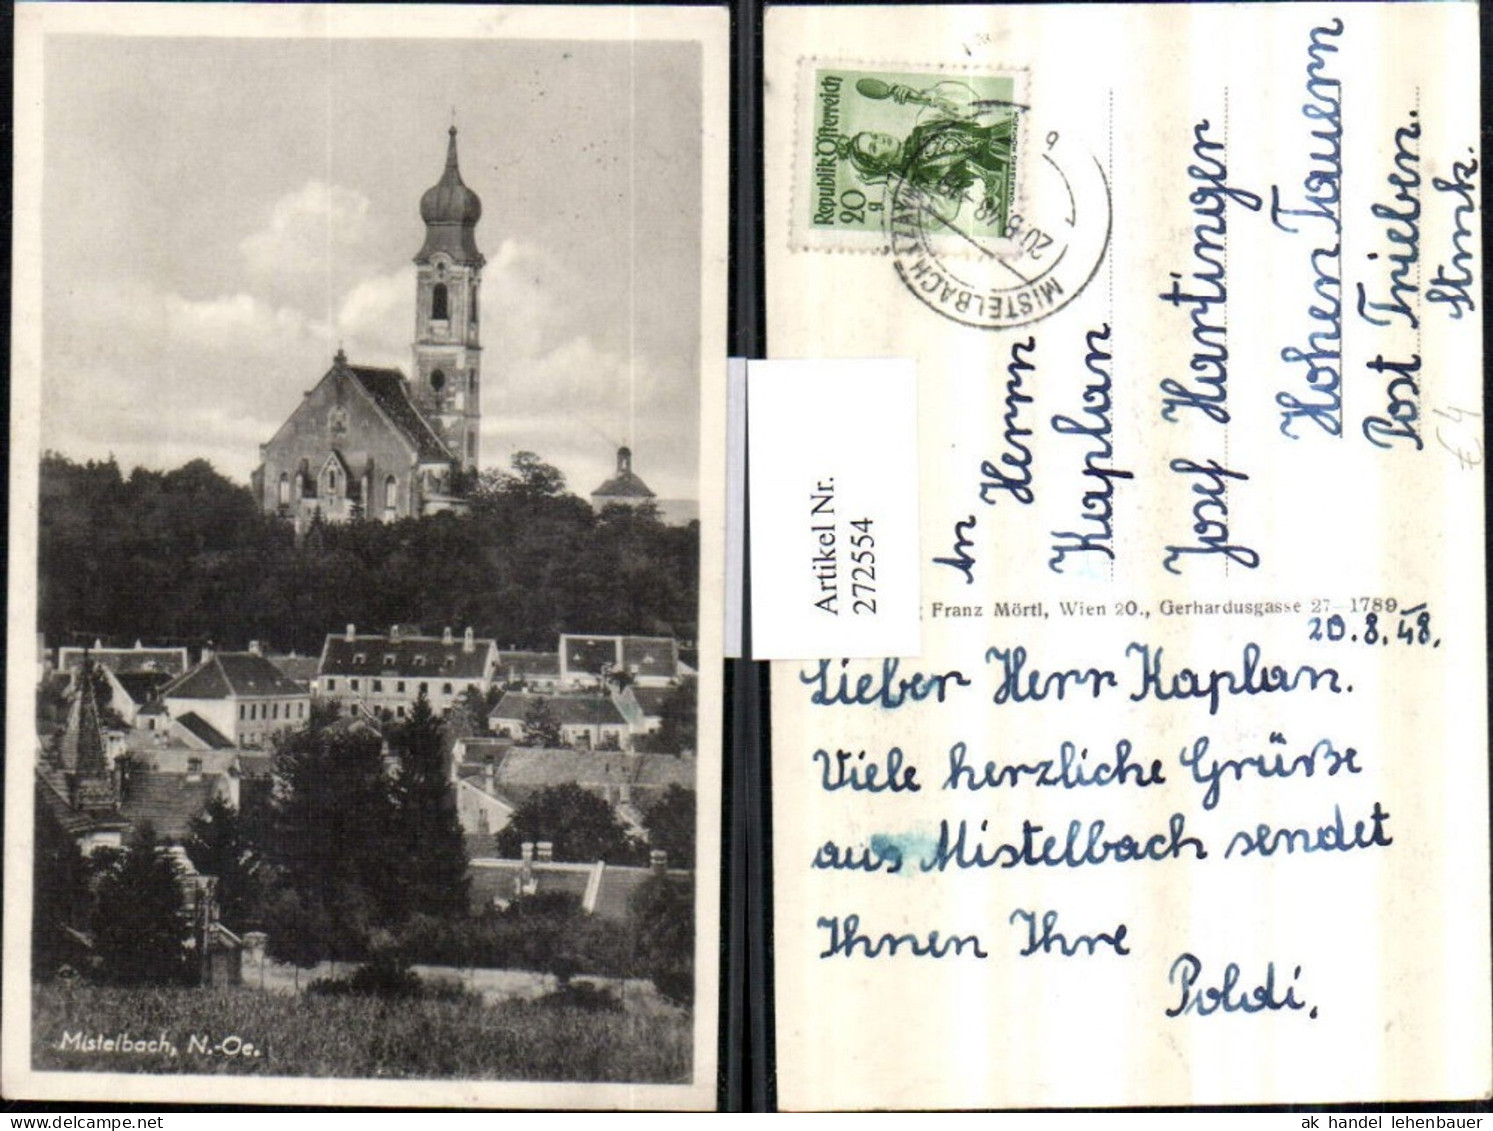 Mistelbach, N.-Oe.
Artikel Nr.
272554
Republik Österreich
20
g
MISTELBACH
20.8.48
An
Herrn
Kaplan
Josef Hartinger
Hohen Tauern
Post Trieben.
Stmk.
€ 4
Franz Mörtl, Wien 20., Gerhardusgasse 27—1789
20.8.48.
Lieber Herr Kaplan.
Viele herzliche Grüße
aus Mistelbach sendet
Ihnen Ihre
Poldi.
ak handel lehenbauer